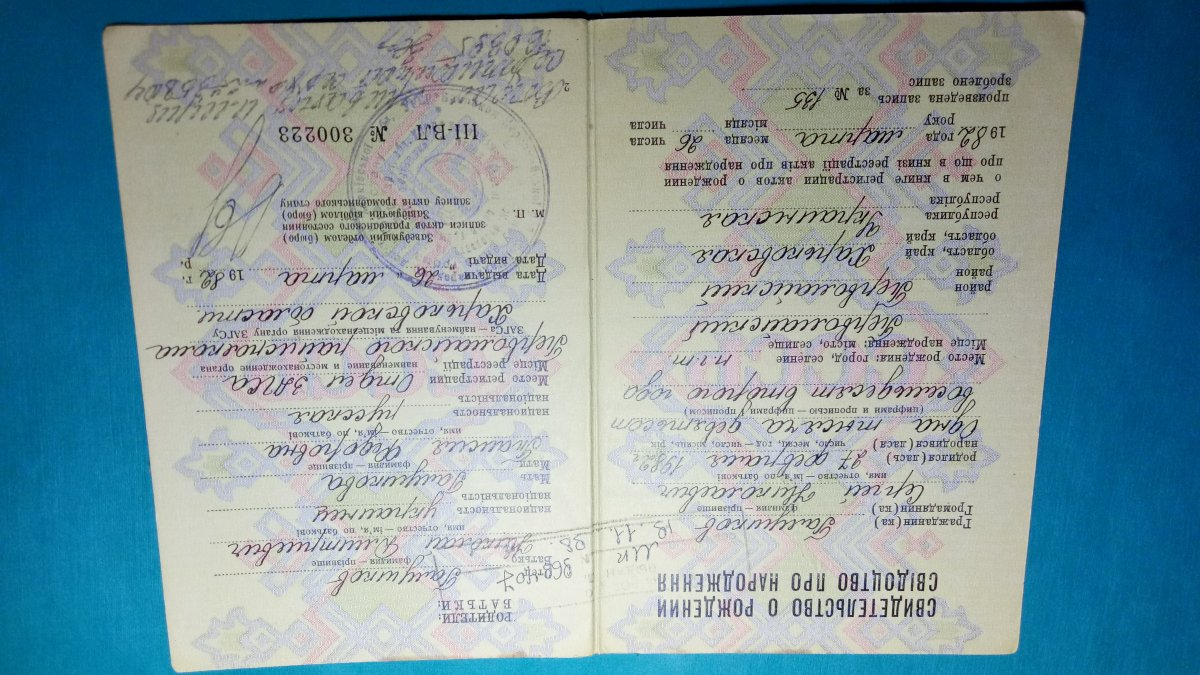 СВИДЕТЕЛЬСТВО О РОЖДЕНИИ
СВІДОЦТВО ПРО НАРОДЖЕННЯ
Гражданин(ка)
Громадянин(ка)
Галушков
фамилия — прізвище
Сергей Николаевич
имя, отчество — ім'я, по батькові
родился(лась)
народився(лася)
27 февраля 1982г
число, месяц, год — число, місяць, рік
Одна тысяча девятьсот
(цифрами и прописью — цифрами і прописом)
восемьдесят второго года
Место рождения: город, селение
Місце народження: місто, селище
п.г.т.
Первомайский
район
район
Первомайский
область, край
область, край
Харьковская
республика
республіка
Украинская
о чем в книге регистрации актов о рождении
про що в книзі реєстрації актів про народження
1982 года марта месяца 26 числа
року місяця числа
произведена запись за № 135
зроблено запис
РОДИТЕЛИ:
БАТЬКИ:
Отец
Батько
Галушков
фамилия — прізвище
Николай Дмитриевич
имя, отчество — ім'я, по батькові
национальность
національність
украинец
Мать
Мати
Галушкова
фамилия — прізвище
Таисия Федоровна
имя, отчество — ім'я, по батькові
национальность
національність
русская
Место регистрации
Місце реєстрації
Отдел ЗАГСа
наименование и местонахождение органа
Первомайского райисполкома
ЗАГСа — найменування та місцезнаходження органу ЗАГСу
Харьковской области
Дата выдачи
Дата видачі
"26" марта 1982 г.
р.
М. П.
Заведующий отделом (бюро)
записи актов гражданского состояния
Завідуючий відділом (бюро)
запису актів громадянського стану
III-ВЛ № 300223
2.